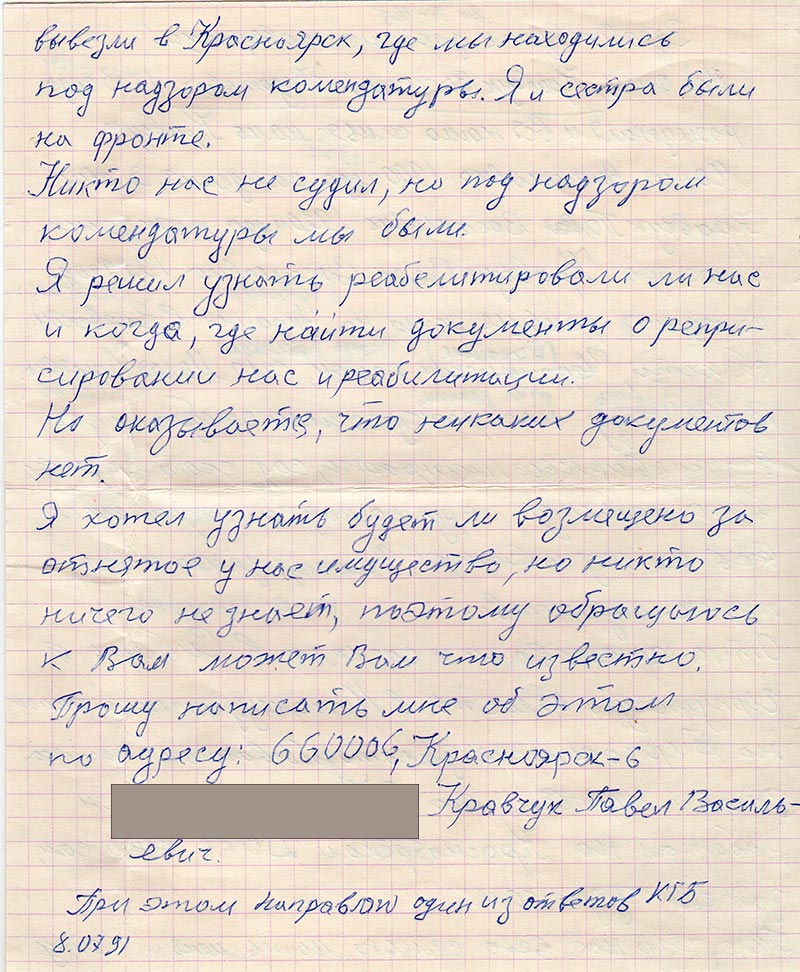 вывезли в Красноярск, где мы находились
под надзором комендатуры. Я и сестра были
на фронте.
Никто нас не судил, но под надзором
комендатуры мы были.
Я решил узнать реабелитировали ли нас
и когда, где найти документы о репри-
сировании нас и реабилитации.
Но оказывается, что никаких документов
нет.
Я хотел узнать будет ли возмещено за
отнятое у нас имущество, но никто
ничего не знает, поэтому обращаюсь
к Вам может Вам что известно.
Прошу написать мне об этом
по адресу: 660006, Красноярск-6
Кравчук Павел Василь-
евич.
При этом направляю один из ответов КГБ
8.07.91